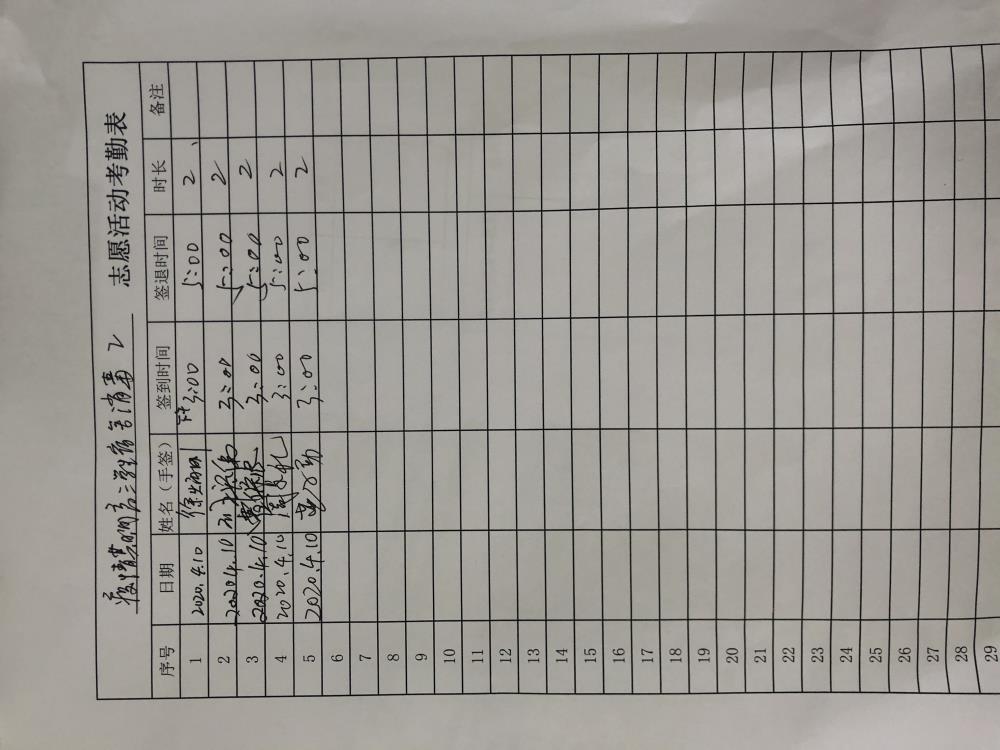 疫情期间 消毒 2 志愿活动考勤表
序号 日期 姓名（手签） 签到时间 签退时间 时长 备注
1 2020.4.10 下午3:00 5:00 2
2 2020.4.10 3:00 5:00 2
3 2020.4.10 3:00 5:00 2
4 2020.4.10 3:00 5:00 2
5 2020.4.10 3:00 5:00 2
6
7
8
9
10
11
12
13
14
15
16
17
18
19
20
21
22
23
24
25
26
27
28
29